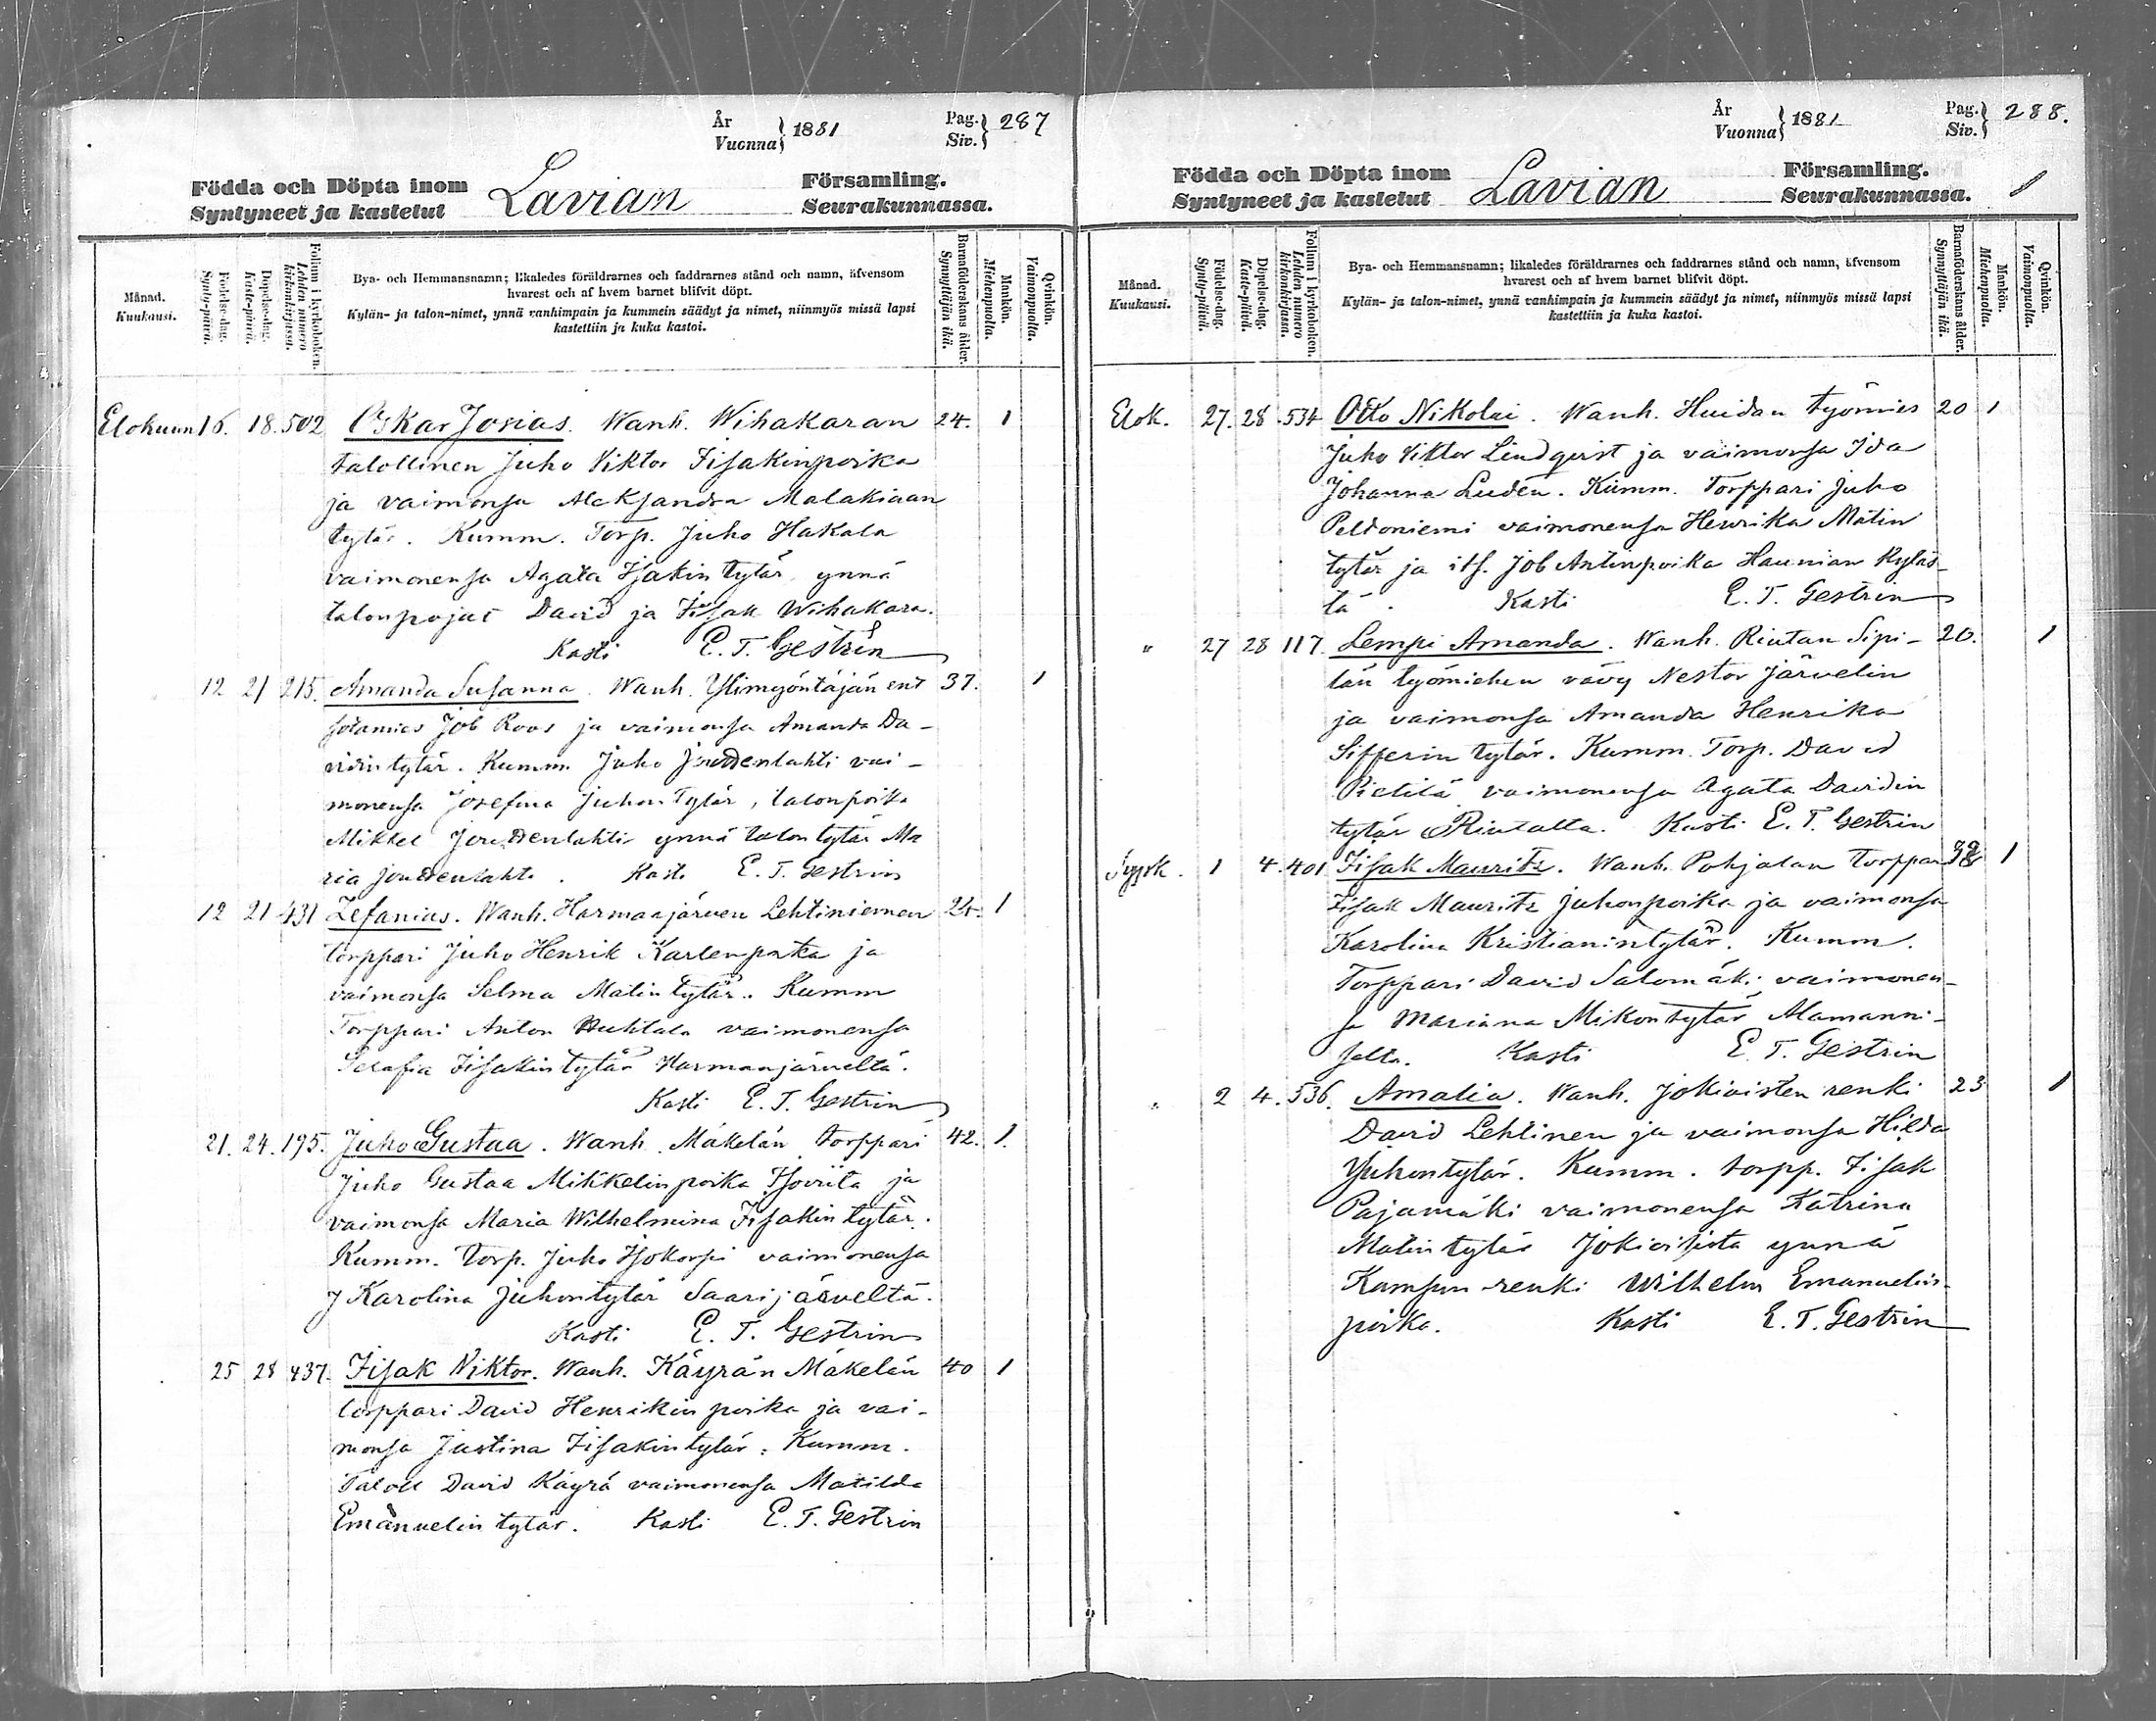 År
Vuonna
1881
Pag.
Siv.
287
Födda och Döpta inom
Syntyneet ja kastetut
Lavian
Församling.
Seurakunnassa.
Månad.
Kuukausi.
Födelse-dag.
Synty-päivä.
Döpelse-dag.
Kaste-päivä.
Folium i kyrkoboken.
Lehden numero kirkonkirjassa.
Bya- och Hemmansnamn; likaledes föräldrarnes och faddrarnes stånd och namn, äfvensom
hvarest och af hvem barnet blifvit döpt.
Kylän- ja talon-nimet, ynnä vanhimpain ja kummein säädyt ja nimet, niinmyös missä lapsi
kastettiin ja kuka kastoi.
Barnaföderskans ålder.
Synnyttäjän ikä.
Mankön.
Miehenpuolta.
Qvinkön.
Vaimonpuolta.
Elokuun 16. 18. 502 Oskar Josias. Wanh. Wihakaran 24. 1
talollinen Juho Viktor Iisakinpoika
ja vaimonsa Aleksandra Malakiaan
tytär. Kumm. Torp. Juho Hakala
vaimonensa Agata Isakin tytär ynnä
talonpojat David ja Iisak Wihakara.
Kasti E. T. Gestrin
12 21 215. Amanda Susanna. Wanh. Ylimyöntäjän ent 37. 1
sotamies Job Roos ja vaimonsa Amanda Da-
vidin tytär. Kumm. Juho Joudenlahti vai-
monensa Josefina Juhon tytär, talonpoika
Mikkel Joudenlahti ynnä talon tytär Ma
ria Joudenlahti. Kasti E. T. Gestrin
12 21 431 Zefanias. Wanh. Harmaajärven Lehtiniemen 24. 1
torppari Juho Henrik Karlenpoika ja
vaimonsa Selma Matintytär. Kumm
Torppari Anton Huhtala vaimonensa
Serafia Iisakin tytär Harmaajärveltä.
Kasti E. T. Gestrin
21. 24. 195. Juho Gustaa. Wanh. Mäkelän torppari 42. 1.
Juho Gustaa Mikkelinpoika ja
vaimonsa Maria Wilhelmina Iisakin tytär.
Kumm. torp. Juho Isokorpi vaimonensa
Karolina Juhontytär Saarijärveltä.
Kasti E. T. Gestrin
25 28 437. Iisak Viktor. Wanh. Käyrän Mäkelän 40 1
torppari David Henrikin poika ja vai-
monsa Justina Iisakin tytär. Kumm.
Taloll David Käyrä vaimonensa Matilda
Emanuelin tytär. Kasti E. T. Gestrin
År
Vuonna
1881
Pag.
Siv.
288.
Födda och Döpta inom
Syntyneet ja kastetut
Lavian
Församling.
Seurakunnassa.
Månad.
Kuukausi.
Födelse-dag.
Synty-päivä.
Döpelse-dag.
Kaste-päivä.
Folium i kyrkoboken.
Lehden numero kirkonkirjassa.
Bya- och Hemmansnamn; likaledes föräldrarnes och faddrarnes stånd och namn, äfvensom
hvarest och af hvem barnet blifvit döpt.
Kylän- ja talon-nimet, ynnä vanhimpain ja kummein säädyt ja nimet, niinmyös missä lapsi
kastettiin ja kuka kastoi.
Barnaföderskans ålder.
Synnyttäjän ikä.
Mankön.
Miehenpuolta.
Qvinkön.
Vaimonpuolta.
Elok. 27. 28 534 Otto Nikolai. Wanh. Huidan työmies 20 1
Juho Viktor Lindqvist ja vaimonsa Ida
Johanna Ludén. Kumm. Torppari Juho
Peltoniemi vaimonensa Henrika Matin
tytär ja its. Job Antinpoika Haunian kyläs-
tä. Kasti E. T. Gestrin
" 27 28 117. Lempi Amanda. Wanh. Riutan Sipi- 20. 1
län työmiehen vävy Nestor Järvelin
ja vaimonsa Amanda Henrika
Sifferin tytär. Kumm. Torp. David
Pietilä vaimonensa Agata Davidin
tytär Riutalta. Kasti E. T. Gestrin
Syysk. 1 4. 401 Iisak Mauritz. Wanh. Pohjalan torppari 1
Iisak Mauritz Juhonpoika ja vaimonsa
Karolina Kristianintytär. Kumm.
Torppari David Salomäki vaimonen-
sa Mariana Mikontytär
Kasti E. T. Gestrin
" 2 4. 536. Amalia. Wanh. Jokioisten renki 23 1
David Lehtinen ja vaimonsa Hilda
Juhontytär. Kumm. torpp. Iisak
Pajamäki vaimonensa Katrina
Matin tytär ynnä
renki Wilhelm Emanuelin-
poika. Kasti E. T. Gestrin